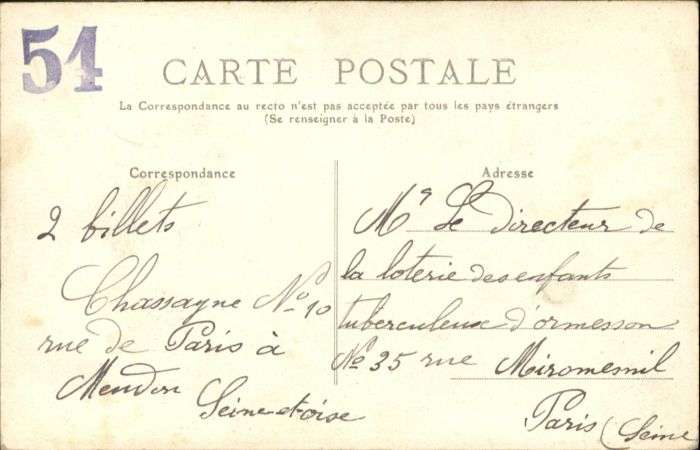 51
CARTE POSTALE
La Correspondance au recto n'est pas acceptée par tous les pays étrangers
(Se renseigner à la Poste)
Correspondance
2 billets
Chassayne No 10
rue de Paris à
Meudon
Seine et oise
Adresse
Mr Le Directeur de
la loterie des enfants
tuberculeux d'ormesson
No 35 rue Miromesnil
Paris (Seine